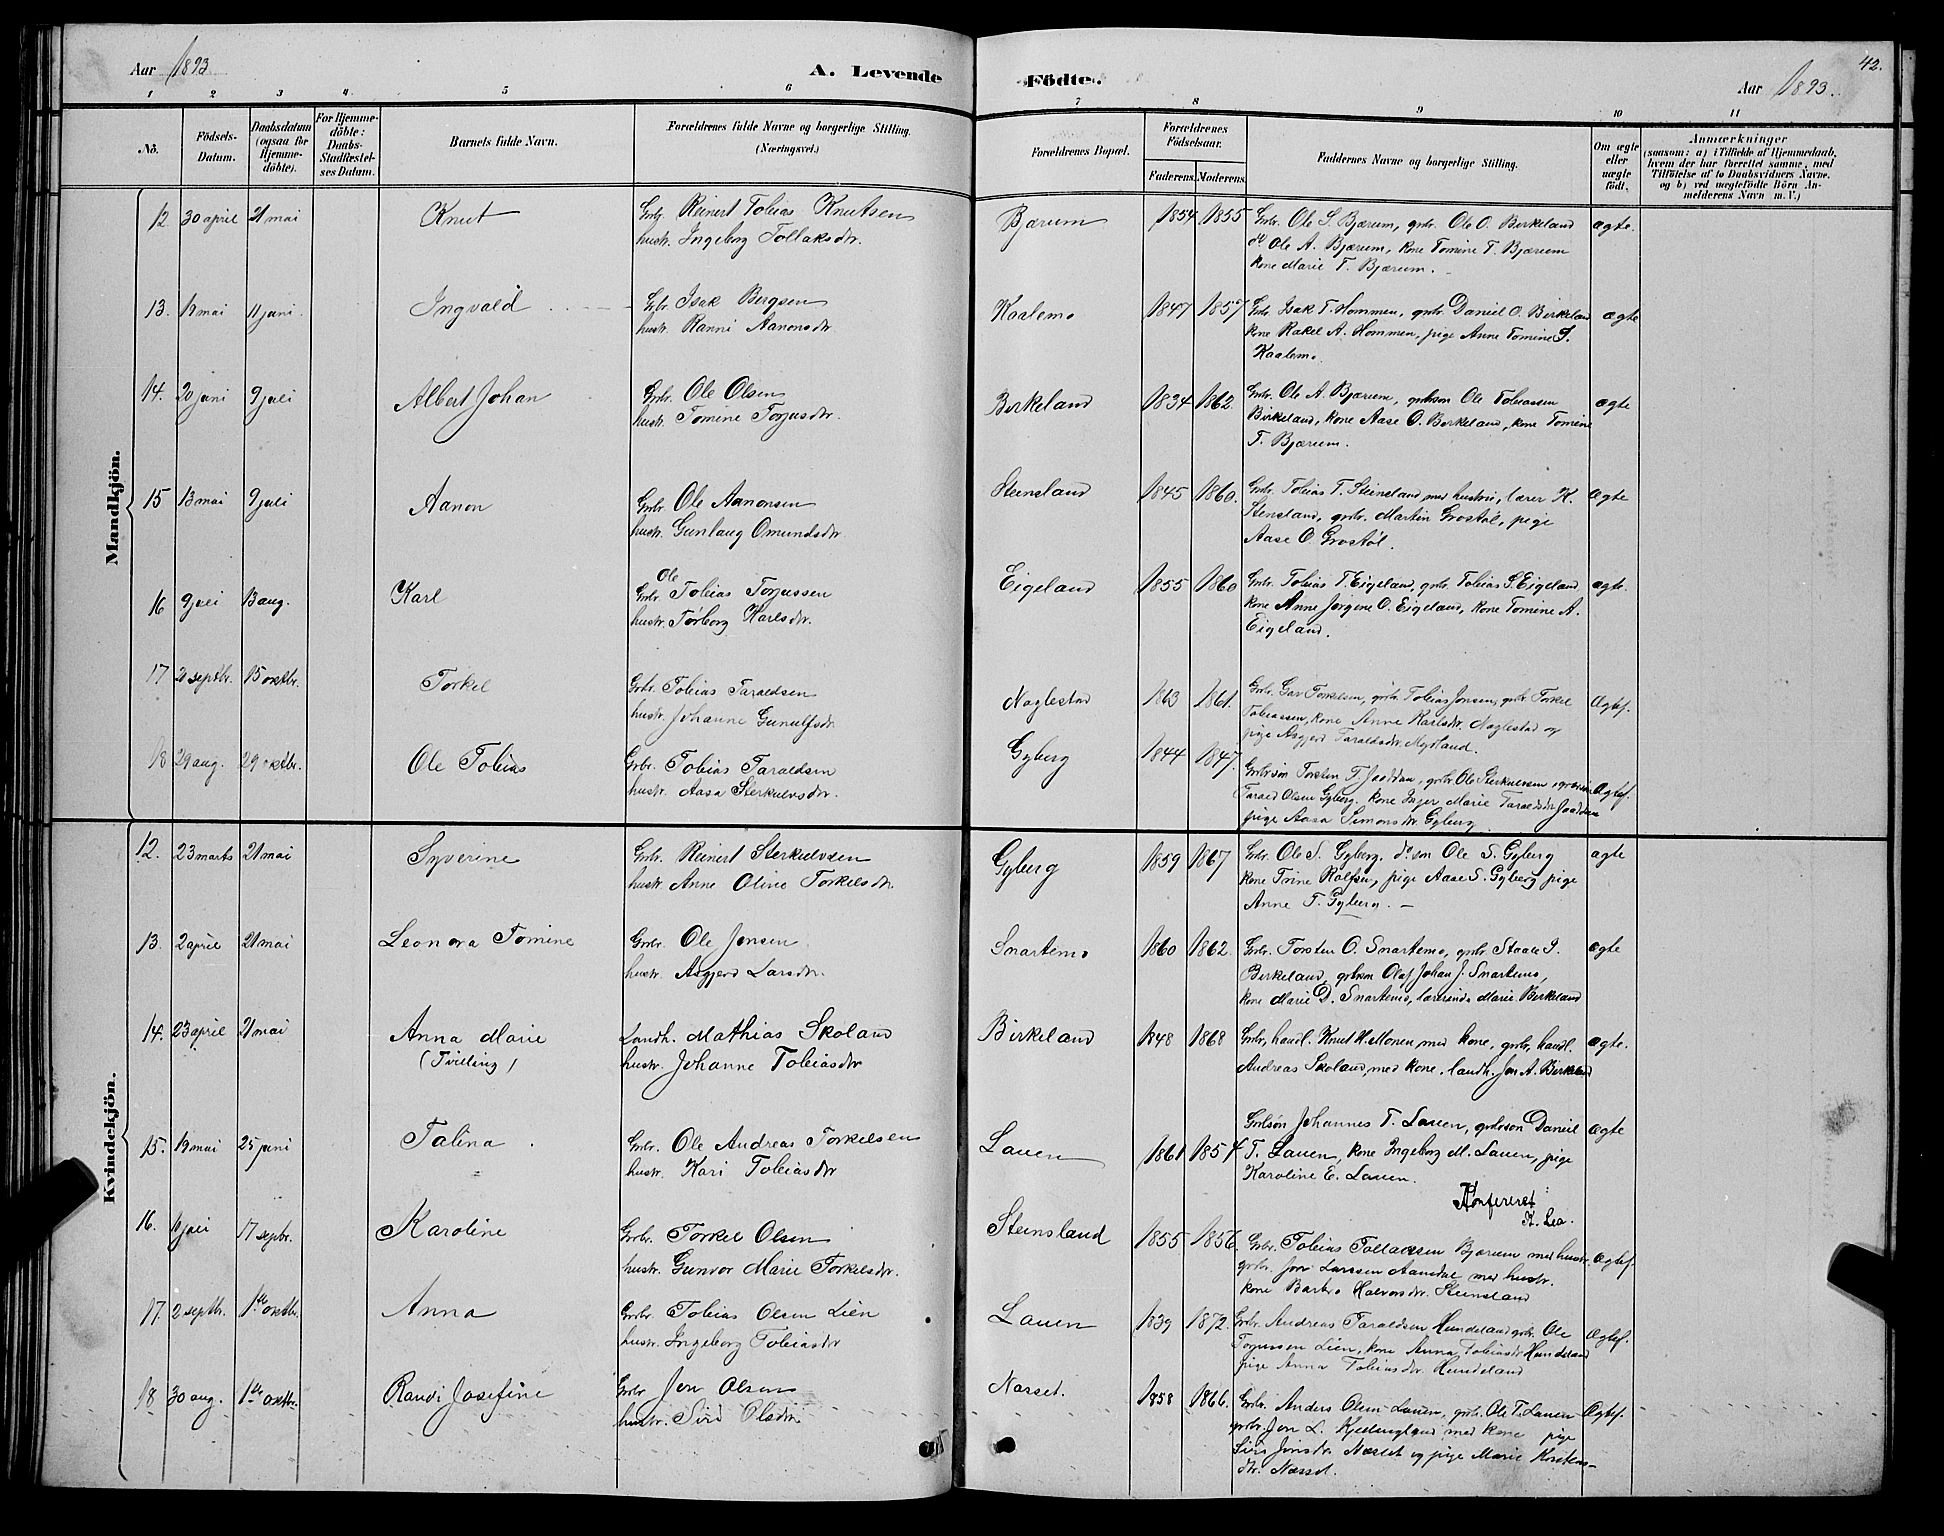 Aar 1893
A. Levende
Födte.
Aar 1893.
42.
1 2 3 4 5 6 7 8 9 10 11
No.
Födsels-
Datum.
Daabsdatum
(ogsaa for
Hjemme-
döbte).
For Hjemme-
döbte:
Daabs-
Stadfæstel-
ses Datum.
Barnets fulde Navn.
Forældrenes fulde Navne og borgerlige Stilling.
(Næringsvei.)
Forældrenes Bopæl.
Forældrenes
Födselsaar.
Faderens. Moderens.
Faddernes Navne og borgerlige Stilling.
Om ægte
eller
uægte
födt.
Anmærkninger
(saasom: a) i Tilfælde af Hjemmedaab,
hvem der har forrettet samme, med
Tilföielse af to Daabsvidners Navne.
og b) ved uægtefödte Börn An-
melderens Navn m. V.)
Mandkjön.
12 30 april 21 mai Knut Grbr. Reinert Tobias Knutsen
hustr. Ingeborg Tollaksdtr.
Bjærum 1854 1855 Grbr. Ole S. Bjærum, grbr. Ole O. Birkeland ægte.
do Ole A. Bjærum, kone Tomine T. Bjærum
kone Marie T. Bjærum.
13. 19 mai 11 juni. Ingvald Grbr. Isak Bergsen
hustr. Ranni Aanonsdtr
Kaalemo 1847 1857 Grbr. Isak T. Hommen, grbr. Daniel O. Birkeland ægte
kone Rakel A. Hommen, pige Anne Tomine S.
Kaalemo.
14. 20 juni 9 juli Albert Johan Grbr. Ole Olsen
hustr. Tomine Torjusdtr.
Birkeland 1834 1862. Grbr. Ole A. Bjærum, grbrsøn Ole Tobiassen ægte
Birkeland, kone Aase O. Birkeland, kone Tomine
T. Bjærum.
15 13 mai 9 juli Aanon Grbr. Ole Aanonsen
hustr. Gunlaug Omundsdtr
Steinsland 1845 1860. Grbr. Tobias T. Steinsland med hustru, lærer K. ægte
Stensland, grbr. Martin Grostøl, pige
Aase O. Grostøl.
16 9 juli 13 aug. Karl Grbr. Ole Tobias Torjussen
hustr. Torborg Karlsdtr.
Eigeland 1855 1860 Grbr. Tobias T. Eigeland, grbr. Tobias S. Eigeland ægte.
kone Anne Jørgine O. Eigeland, kone Tomine A.
Eigeland.
17 20 septbr. 15 oktbr. Torkel Grbr. Tobias Taraldsen
hustr. Johanne Gunulfsdtr.
Naglestad 1863 1861. Grbr. Torkelsen, grbr. Tobias Jonsen, grbr. Torkel Ægtef.
Tobiassen, kone Anne Karlsdtr. Naglestad og
pige Asgjerd Taraldsdtr. Mydland.
18 29 aug. 29 oktbr. Ole Tobias Grbr. Tobias Taraldsen
hustr. Aasa Sterkulvsdtr.
Gyberg 1844 1847. Grbrsøn Torsten T. Joddan, grbr. Ole Sterkulvsen, Ægtef.
Tarald Olsen Gyberg, kone Inger Marie Taraldsdtr
pige Aasa Simonsdtr. Gyberg
Kvindekjön.
12. 23 marts 21 mai Syverine Grbr. Reinert Sterkulvsen
hustr Anne Oline Torkelsdtr.
Gyberg 1859 1867 Grbr. Ole S. Gyberg. do søn Ole S. Gyberg ægte
kone Trine Rolfsen, pige Aase S. Gyberg pige
Anne T. Gyberg. —
13. 2 april 21 mai Leonora Tomine Grbr. Ole Jonsen
hustr. Asgjerd Larsdtr.
Snartemo 1860 1862. Grbr. Torsten O. Snartemo, grbr. Staale I. ægte
Birkeland, grbrsøn Olaf Johan J. Snartemo,
kone Marie D. Snartemo, lærerinde Marie Birkeland
14. 23 april 21 mai Anna Marie
(Tvilling)
Landh. Mathias Skoland
hustr. Johanne Tobiasdtr
Birkeland 1848 1868 Grbr, handl. Knut H. Monen med kone, grbr, handl. ægte.
Andreas Skoland, med kone, landh. Jon A. Birkeland
15. 19 mai 25 juni Talina Grbr. Ole Andreas Torkelsen
hustr. Kari Tobiasdtr
Lauen 1861 1854 Grbrsøn Johannes T. Lauen, grbrsøn Daniel ægte
T. Lauen, kone Ingeborg M. Lauen, pige
Karoline E. Lauen.
Konfereret
K. Lea.
16. 10 juli 17 septbr. Karoline Grbr. Torkel Olsen
hustr. Gunvor Marie Torkelsdtr.
Steinsland 1855 1856. Grbr. Tobias Tollaksen Bjærum med hustr. Ægtef.
grbr. Jon Larssen Aamdal med hustr.
kone Barbro Halvorsdtr. Steinsland
17. 2 septbr. 1ste oktbr. Anna Grbr. Tobias Olsen Lien
hustr. Ingeborg Tobiasdtr
Lauen 1839 1872. Grbr. Andreas Taraldsen Hundeland grbr. Ole Ægtef.
Torjussen Lien, kone Anna Tobiasdtr Hundeland
pige Anna Tobiasdtr. Hundeland
18 30 aug. 1ste oktbr. Randi Josefine Grbr Jon Olsen
hustr. Siri Olsdtr
Narset. 1858 1866. Grbr. Anders Olsen Lauen, grbr. Ole T. Lauen Ægtef.
grbr. Jon L. Kjedingland med kone pige
Siri Jonsdtr. Næsset og pige Marie Kristens-
dtr. Næsset.